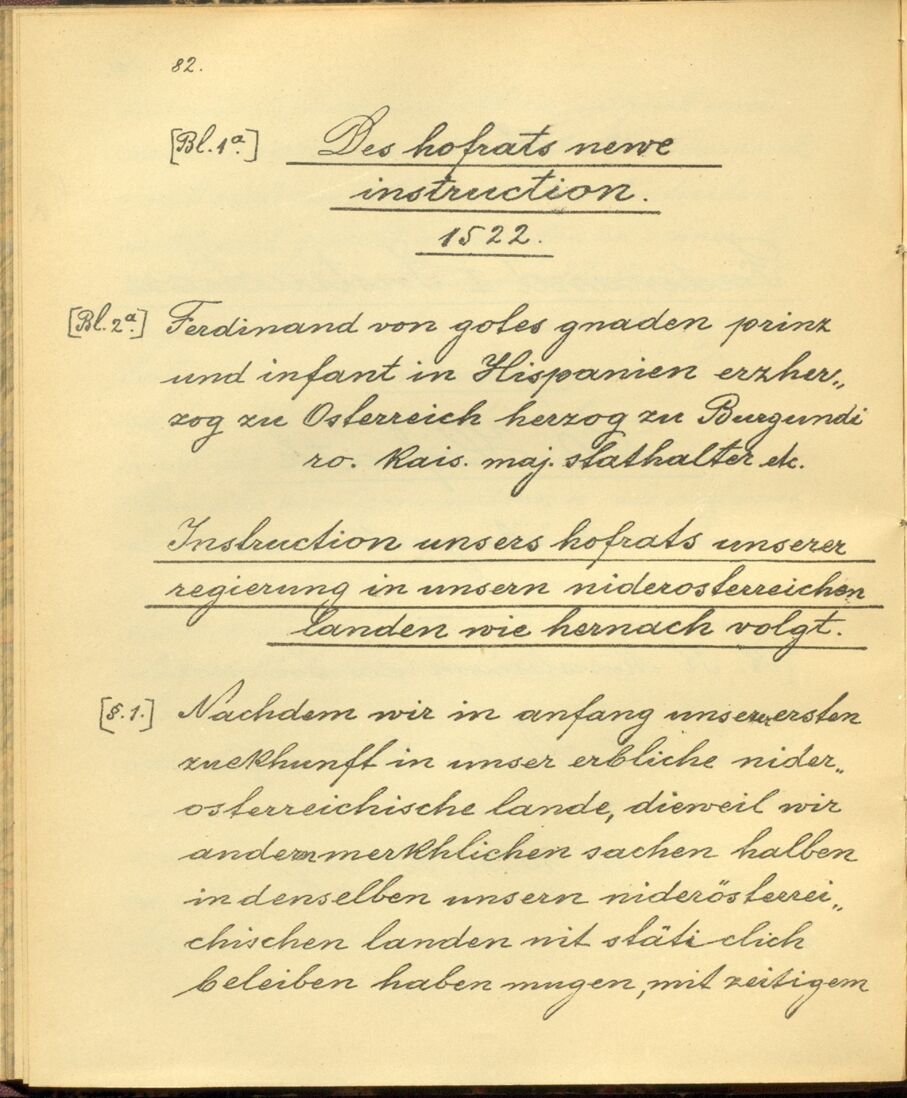 82.
[Bl. 1a.] Des hofrats newe
instruction.
1522.
[Bl. 2a.] Ferdinand von gotes gnaden prinz
und infant in Hispanien erzher„
zog zu Osterreich herzog zu Burgundi
ro. kais. maj. stathalter etc.
Instruction unsers hofrats unserer
regierung in unsern niderosterreichen
landen wie hernach volgt.
[§. 1.] Nachdem wir in anfang unserer ersten
zuekhunft in unser erbliche nider„
osterreichische lande, dieweil wir
andern merkhlichen sachen halben
in denselben unsern niderösterrei„
chischen landen nit stäticlich
beleiben haben mugen, mit zeitigem